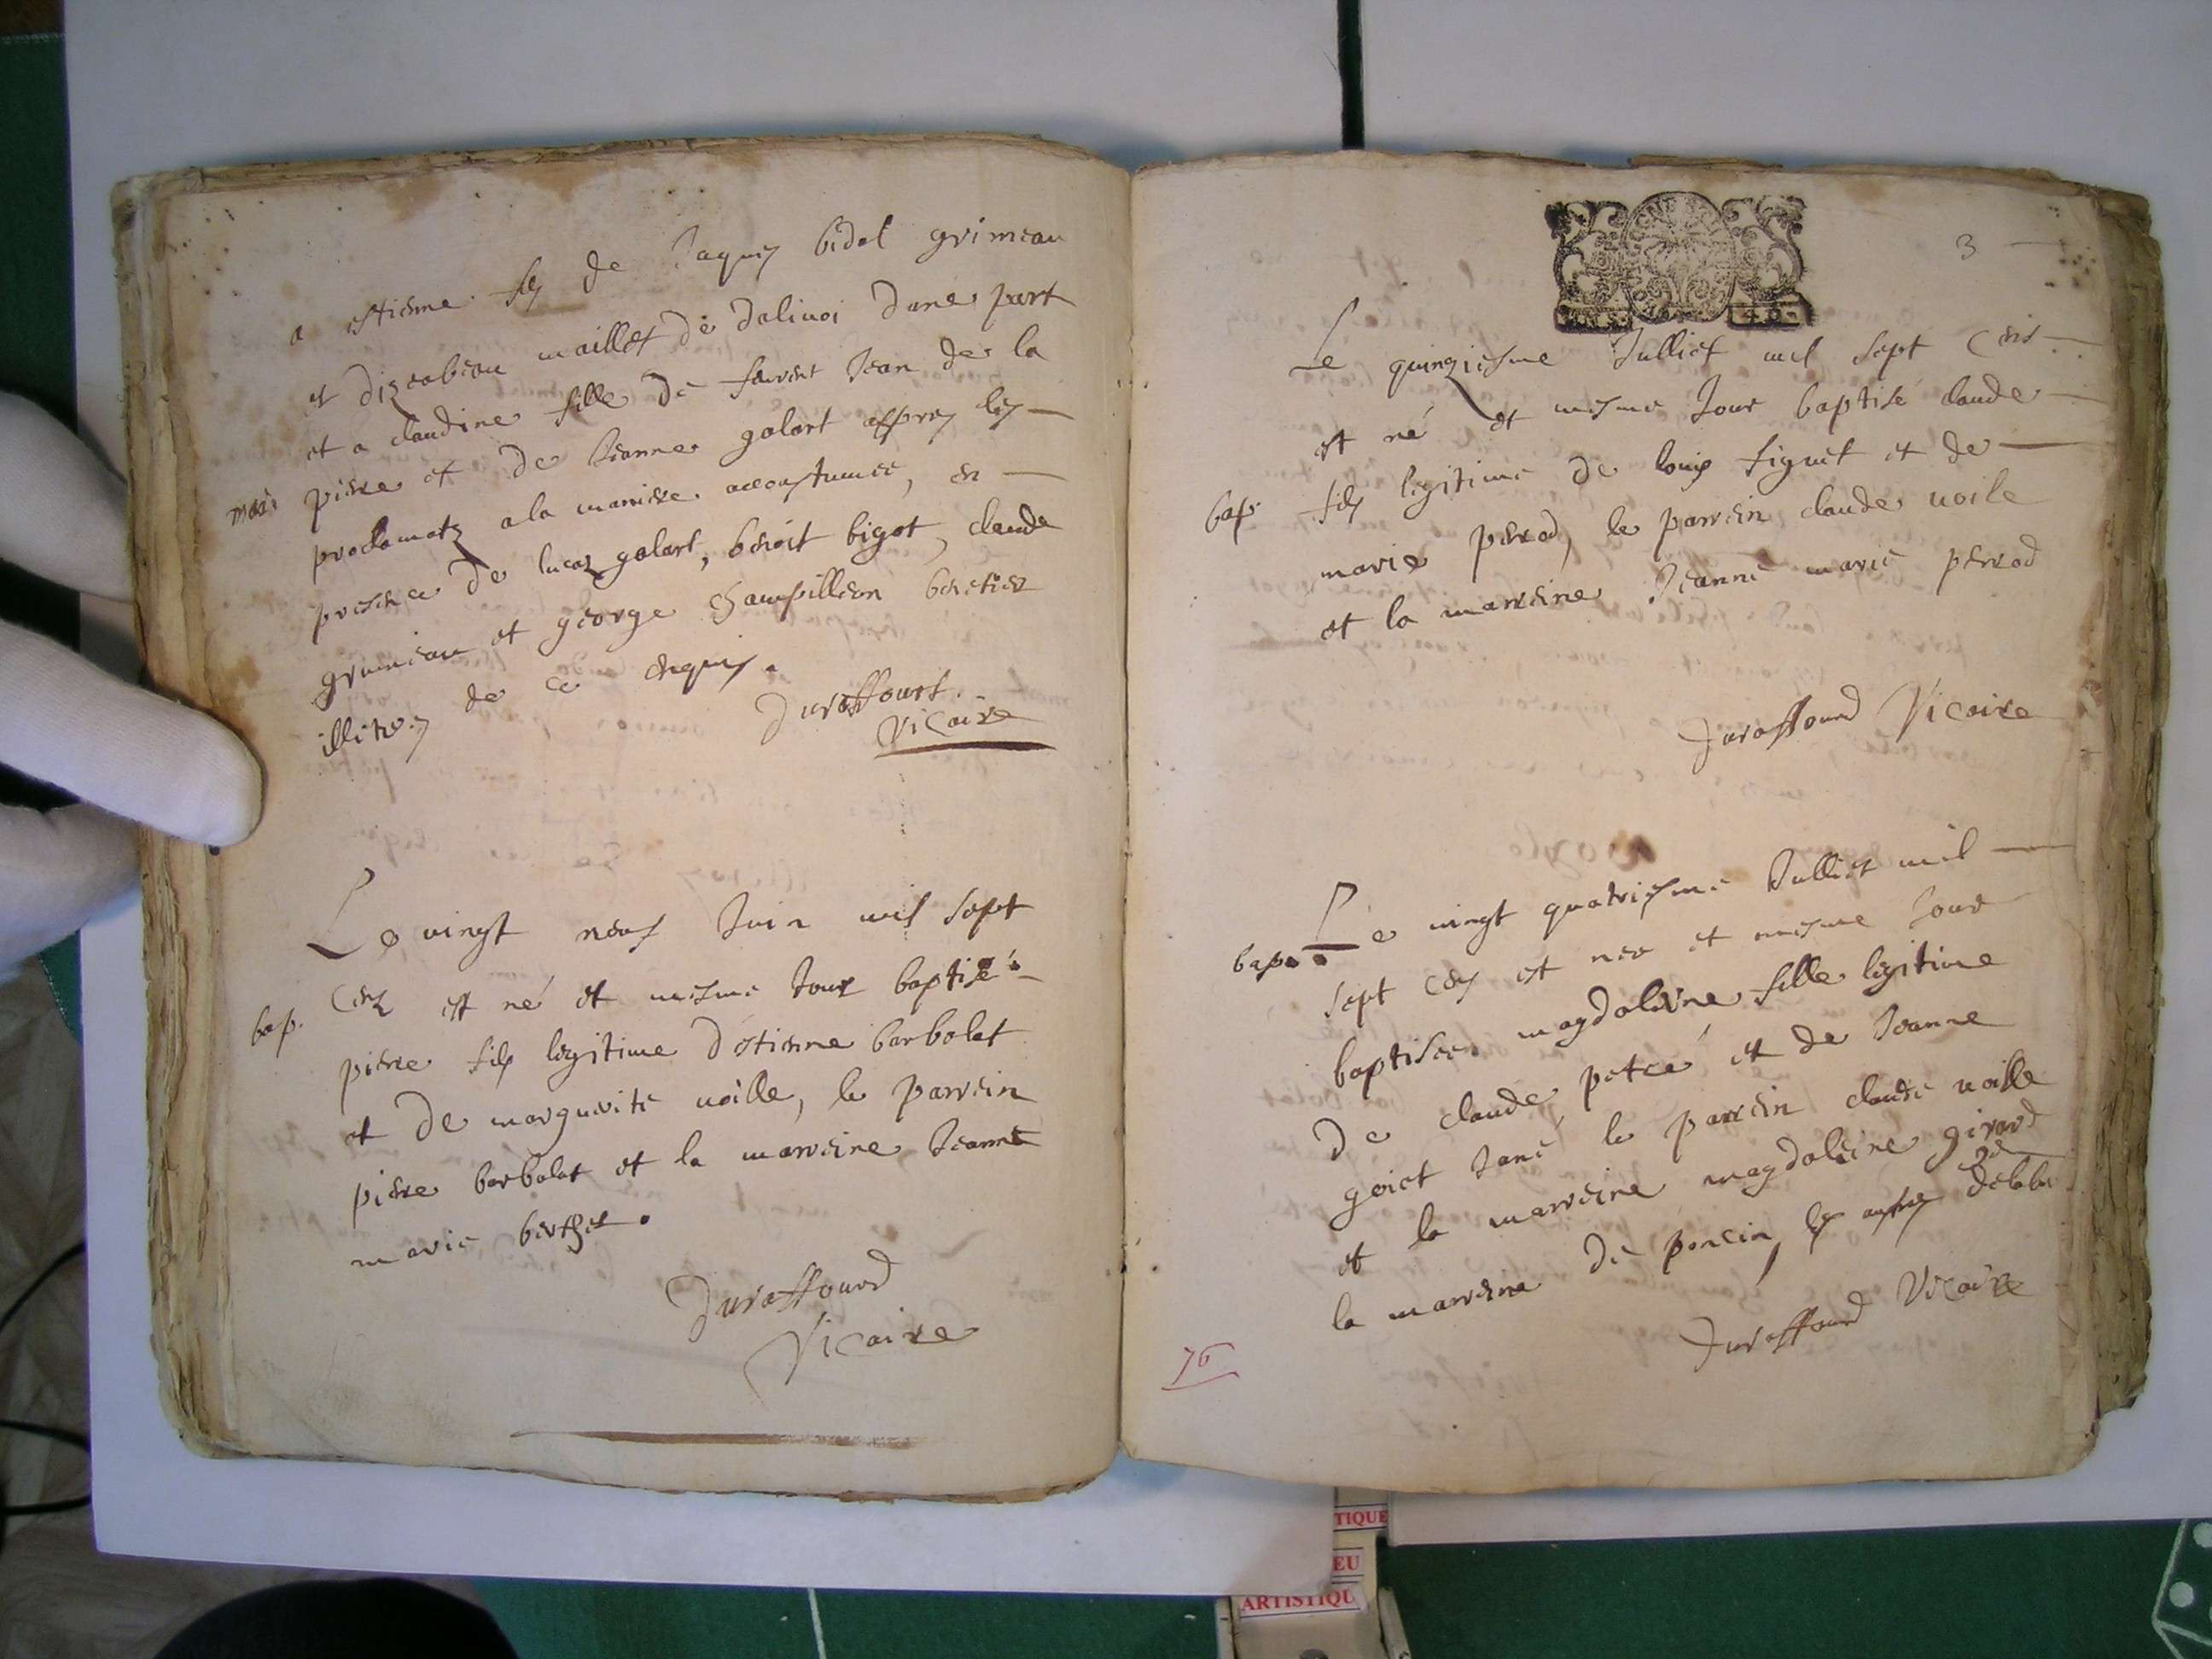 a estienne fils de Jaques bidal grimeau
et dizeabeau maillet de dalivoi dune part
et a claudine fille de favent Jean de la
mari pierre et de Jeanne golart appres les
proclamatz a la maniere accoustumee, en
presence de lucas golart, benoit bigot, claude
grumeau et george Champillion benetier
illitres de ce enquis.
Duraffourt
Vicaire
Le vingt neuf Juin mil sept
bap. Cens est né et mesme Jour baptisé
pierre fils legitime d'etienne barbolat
et de marguerite voille, le parrein
pierre barbolat et la marreine Jeanne
marie berthet.
Duraffourd
Vicaire
3
Le quinziesme Julliet mil sept Cens
est né et mesme Jour baptisé claude
bap. fils legitime de louis figuet et de
marie perrod, le parrein claude voile
et la marreine Jeanne marie perrod
Duraffourd Vicaire
bap. Le vingt quatriesme Julliet mil
sept Cens est nee et mesme Jour
baptisee magdeleine fille legitime
De claude petcé et de Jeanne
goiet Jané le parrein claude voille
et la marreine magdeleine girard
la marreine de poncin les autres de
Duraffourd Vicaire
76
TIQUE
EU
ARTISTIQU